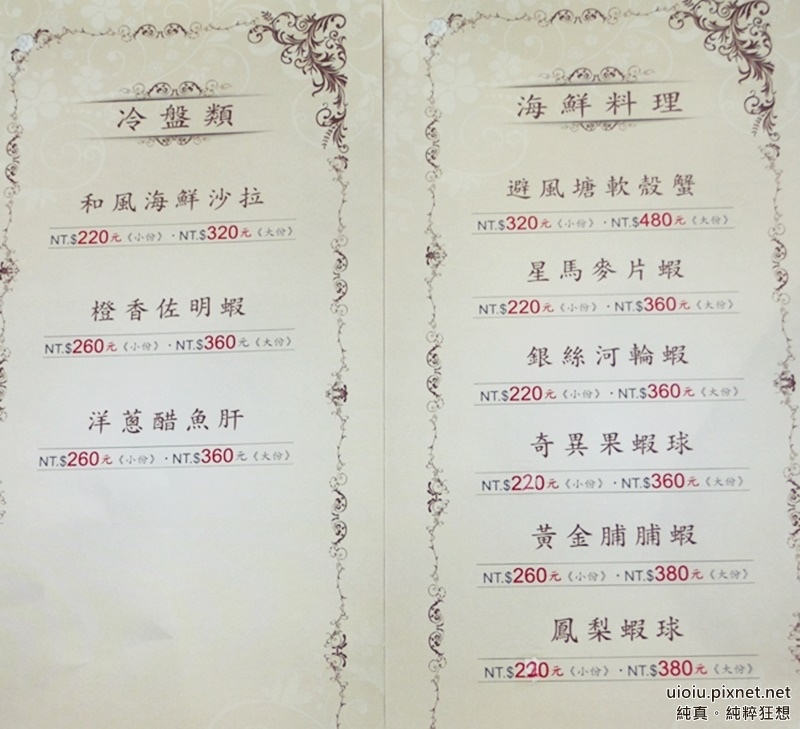 冷盤類
和風海鮮沙拉
NT.$220元《小份》·NT.$320元《大份》
橙香佐明蝦
NT.$260元《小份》·NT.$360元《大份》
洋蔥醋魚肝
NT.$260元《小份》·NT.$360元《大份》
海鮮料理
避風塘軟殼蟹
NT.$320元《小份》·NT.$480元《大份》
星馬麥片蝦
NT.$220元《小份》·NT.$360元《大份》
銀絲河輪蝦
NT.$220元《小份》·NT.$360元《大份》
奇異果蝦球
NT.$220元《小份》·NT.$360元《大份》
黃金脯脯蝦
NT.$260元《小份》·NT.$380元《大份》
鳳梨蝦球
NT.$220元《小份》·NT.$380元《大份》
uioiu.pixnet.net
純真。純粹狂想